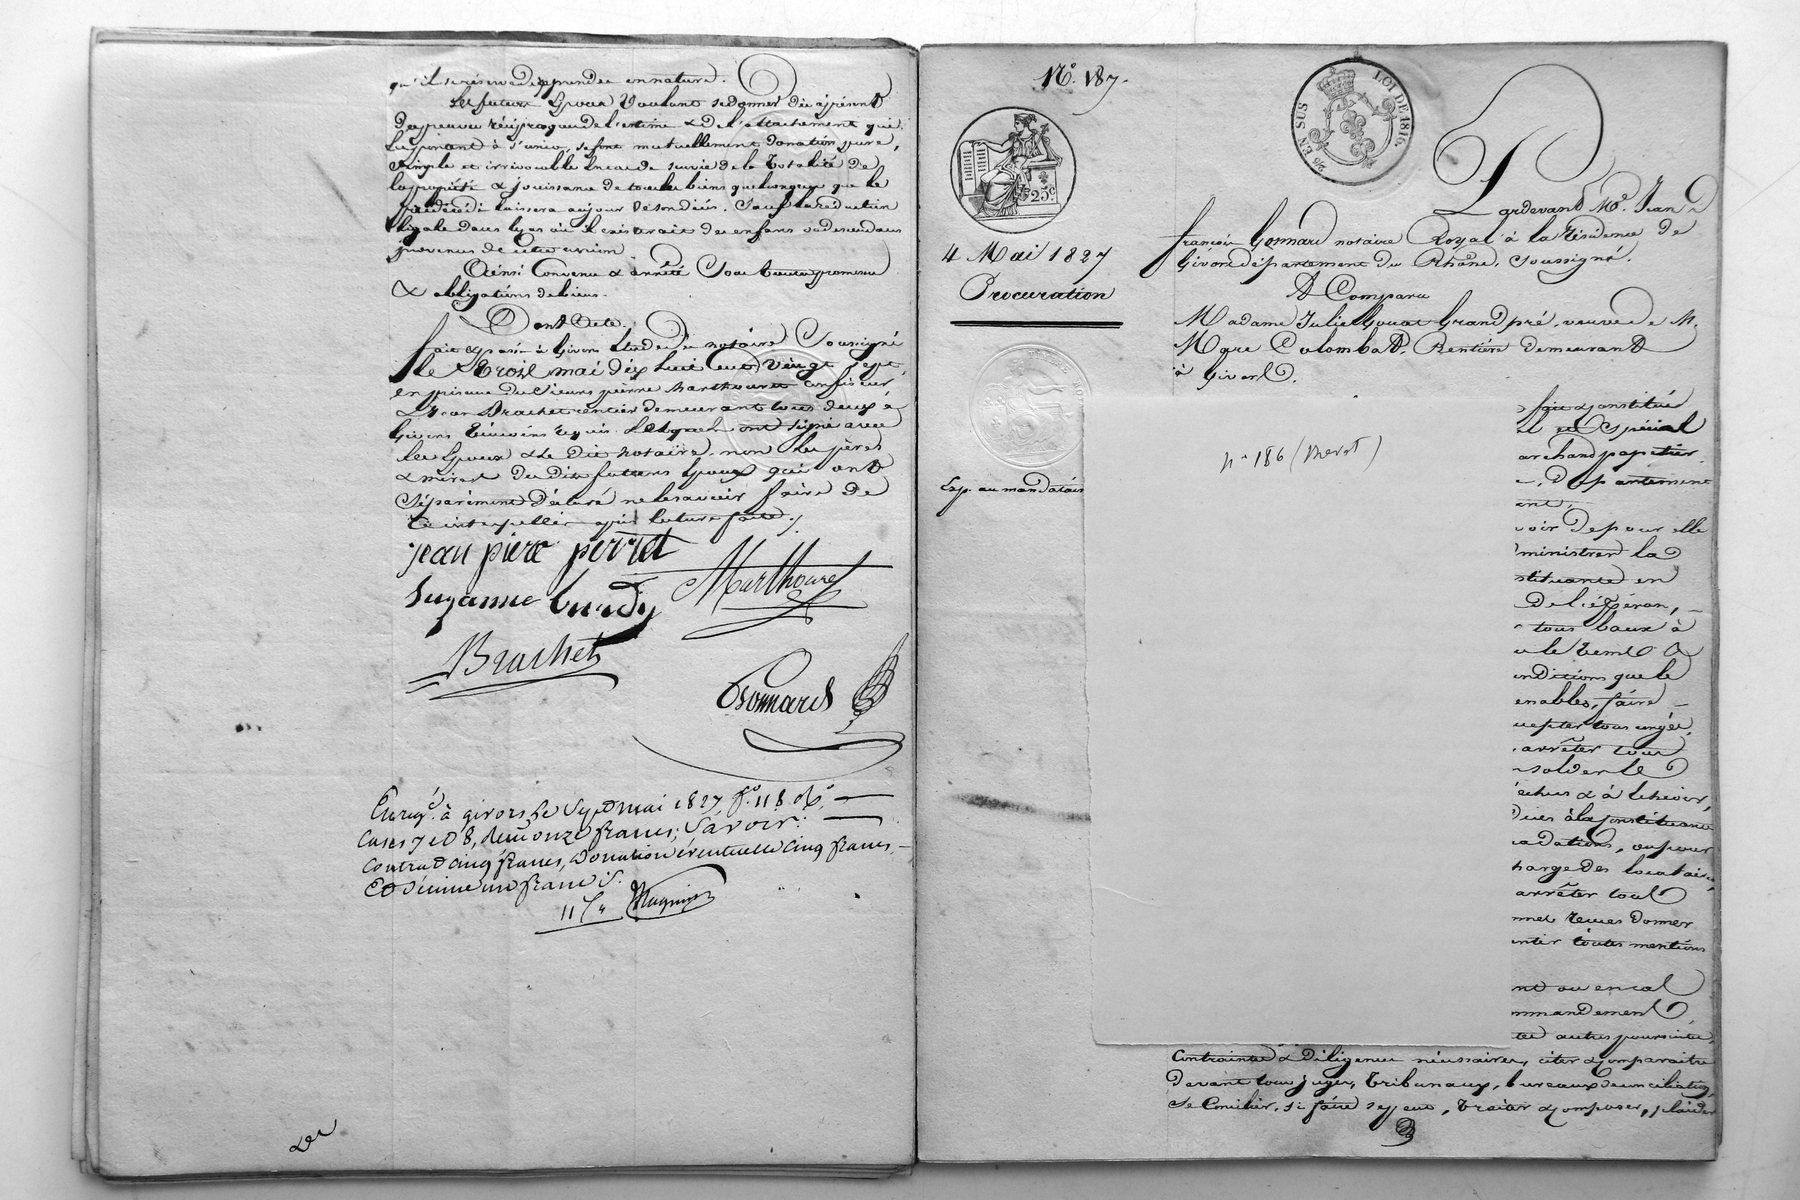 qu'il se réserve de prendre en nature.
Les futurs Epoux Voulant se donner dès à présent
des preuves réciproques de l'estime & de l'attachement qui
les portent à s'unir, se font mutuellement donation pure,
simple et irrévocable en cas de survie de la totalité de
la propriété & jouissance de tous les biens quelconques que le
prédécédé laissera au jour de son décès. Sauf la réduction
légale dans le cas où il existerait des enfans ou descendans
provenus de cette union
Ainsi Convenu & arrêté Sous toutes promesses
& obligations de biens.
Dont Acte.
fait & passé à Givors Etude du notaire Soussigné
le trois mai dix huit Cent Vingt sept,
en présence des Sieurs pierre Marthouret confiseur
& Brachet rentier demeurant tous deux à
Givors témoins requis Lesquels ont signé avec
les Epoux & le dit notaire, non les pères
& mères des dits futurs Epoux qui ont
Séparément déclaré ne le savoir faire de
ce interpellés après lecture faite./
jean piere perret
Marthouret
Suzanne
Brachet
Gonnard
Enreg.é à givors le Sept mai 1827 f.o 118 R.o
Cases 7 et 8, Reçu onze francs; Savoir:
Contrat cinq francs, Donation éventuelle Cinq francs,
Et Décime un franc
11 f "
N.o 187.
25 EN SUS
LOI DE 1816.
25.c
4 Mai 1827
Procuration
Exp. au mandataire
Pardevant M.e Jean
françois Gonnard notaire Royal à la résidence de
Givors département du Rhône, Soussigné.
A Comparu
Madame Julie Grand pré, veuve de M.
Colombat, Rentière demeurant
à Givors.
n° 186 (
fait & constitué
et Spécial
archand papetier
, Département
ent,
voir de pour elle
ministrer la
stituante en
de
tous baux à
le tems &
onditions que le
enables, faire
cepter tous congés,
arrêter tous
solder le
échus & à échoir,
dues à la constituante
adations, ou pour
harge des locataires,
arrêter tout
donner
entir toutes mentions
nt ou en cas
mmandement
tes autres poursuites,
Contraintes & diligences nécessaires, citer & comparaitre
devant tous juges, Tribunaux, bureaux de conciliation,
Se Concilier, si faire se peut, traiter & composer, plaider